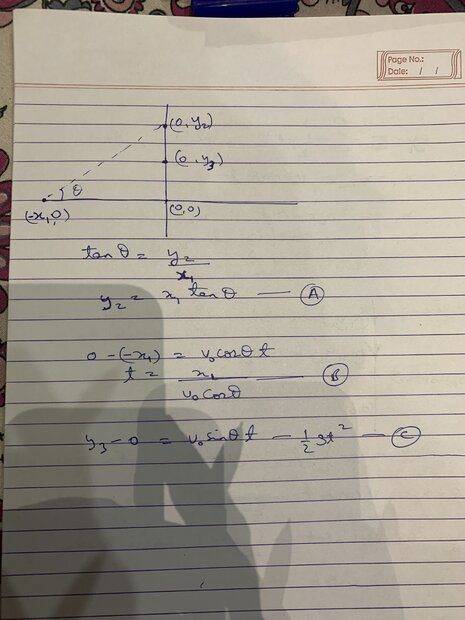 Page No.:
Date: / /
(0, y₂)
(0, y₃)
θ
(-x₁, 0)
(0,0)
tan θ = y₂/x₁
y₂ = x₁ tan θ — (A)
0 - (-x₁) = v₀ cos θ t
t = x₁/(v₀ cos θ) — (B)
y₃ - 0 = v₀ sin θ t - 1/2 gt² — (C)